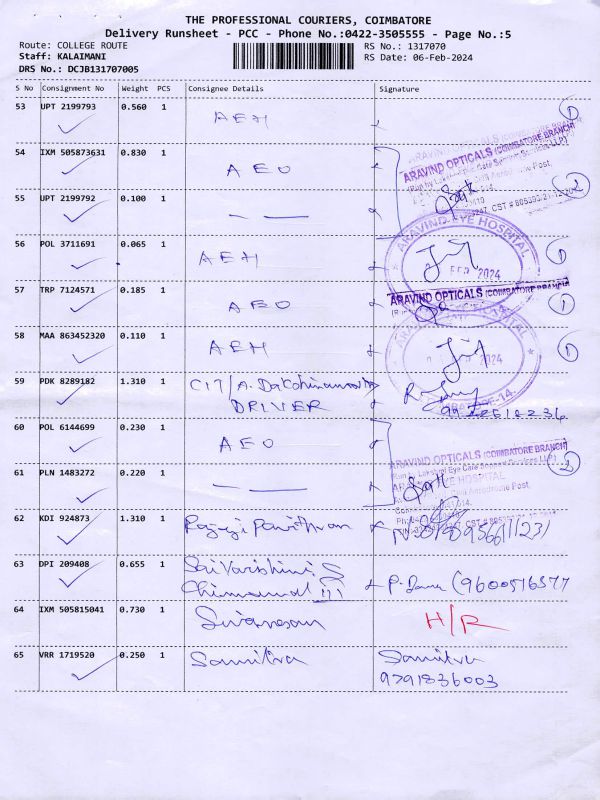 THE PROFESSIONAL COURIERS, COIMBATORE
Delivery Runsheet - PCC - Phone No.:0422-3505555 - Page No.:5
Route: COLLEGE ROUTE RS No.: 1317070
Staff: KALAIMANI RS Date: 06-Feb-2024
DRS No.: DCJB131707005
S No Consignment No Weight PCS Consignee Details Signature
53 UPT 2199793 0.560 1 AEH 1
ARAVIND OPTICALS (COIMBATORE BRANCH)
54 IXM 505873631 0.830 1 AEO
55 UPT 2199792 0.100 1 — — 2
ARAVIND EYE HOSPITAL
56 POL 3711691 0.065 1 AEH 1
FEB 2024
57 TRP 7124571 0.185 1 AEO 1
ARAVIND OPTICALS (COIMBATORE BRANCH)
58 MAA 863452320 0.110 1 AEH 1
2024
59 PDK 8289182 1.310 1 CIT/A.
DRIVER
60 POL 6144699 0.230 1 AEO
ARAVIND OPTICALS (COIMBATORE BRANCH)
61 PLN 1483272 0.220 1 — — 2
62 KDI 924873 1.310 1
63 DPI 209408 0.655 1 Sai Varshini S
(9600516577
64 IXM 505815041 0.730 1 Sivanesan H/R
65 VRR 1719520 0.250 1 Samitra Samitra
9791836003